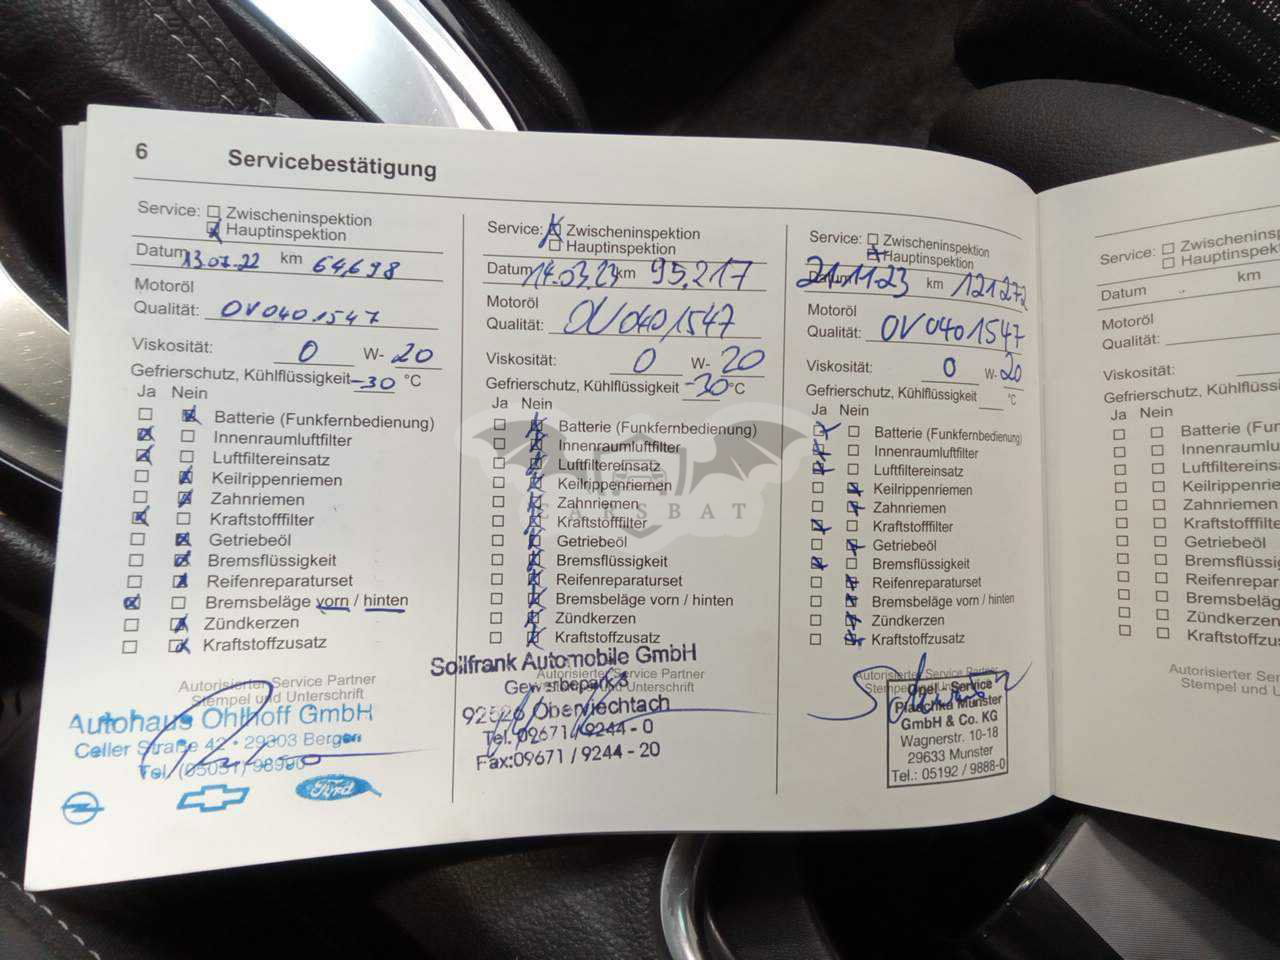 6 Servicebestätigung
Service: Zwischeninspektion
Hauptinspektion
Datum 13.07.22 km 64,698
Motoröl
Qualität: OV0401547
Viskosität: 0 W- 20
Gefrierschutz, Kühlflüssigkeit -30 °C
Ja Nein
Batterie (Funkfernbedienung)
Innenraumluftfilter
Luftfiltereinsatz
Keilrippenriemen
Zahnriemen
Kraftstofffilter
Getriebeöl
Bremsflüssigkeit
Reifenreparaturset
Bremsbeläge vorn / hinten
Zündkerzen
Kraftstoffzusatz
Autorisierter Service Partner
Stempel und Unterschrift
Autohaus Ohlhoff GmbH
Celler Straße 42 · 29303 Bergen
Tel. (05051) 98990
Ford
Service: Zwischeninspektion
Hauptinspektion
Datum 14.03.23 km 95.217
Motoröl
Qualität: OV0401547
Viskosität: 0 W- 20
Gefrierschutz, Kühlflüssigkeit -30 °C
Ja Nein
Batterie (Funkfernbedienung)
Innenraumluftfilter
Luftfiltereinsatz
Keilrippenriemen
Zahnriemen
Kraftstofffilter
Getriebeöl
Bremsflüssigkeit
Reifenreparaturset
Bremsbeläge vorn / hinten
Zündkerzen
Kraftstoffzusatz
Sollfrank Automobile GmbH
Autorisierter Service Partner
Gewerbepark 3
92526 Oberviechtach
Tel. 09671 / 9244 - 0
Fax:09671 / 9244 - 20
Service: Zwischeninspektion
Hauptinspektion
Datum 21.11.23 km 121272
Motoröl
Qualität: OV0401547
Viskosität: 0 W- 20
Gefrierschutz, Kühlflüssigkeit °C
Ja Nein
Batterie (Funkfernbedienung)
Innenraumluftfilter
Luftfiltereinsatz
Keilrippenriemen
Zahnriemen
Kraftstofffilter
Getriebeöl
Bremsflüssigkeit
Reifenreparaturset
Bremsbeläge vorn / hinten
Zündkerzen
Kraftstoffzusatz
Autorisierter Service Partner
Opel - Service
Plaschka Munster
GmbH & Co. KG
Wagnerstr. 10-18
29633 Munster
Tel.: 05192 / 9888-0
Service: Zwischeninsp
Hauptinspekti
Datum km
Motoröl
Qualität:
Viskosität:
Gefrierschutz, Kühlflüss
Ja Nein
Batterie (Fun
Innenrauml
Luftfiltereins
Keilrippenrie
Zahnriemen
Kraftstofffilte
Getriebeöl
Bremsflüssi
Reifenrepar
Bremsbeläg
Zündkerzen
Kraftstoffzu
Autorisierter Se
Stempel und U
CARSBAT